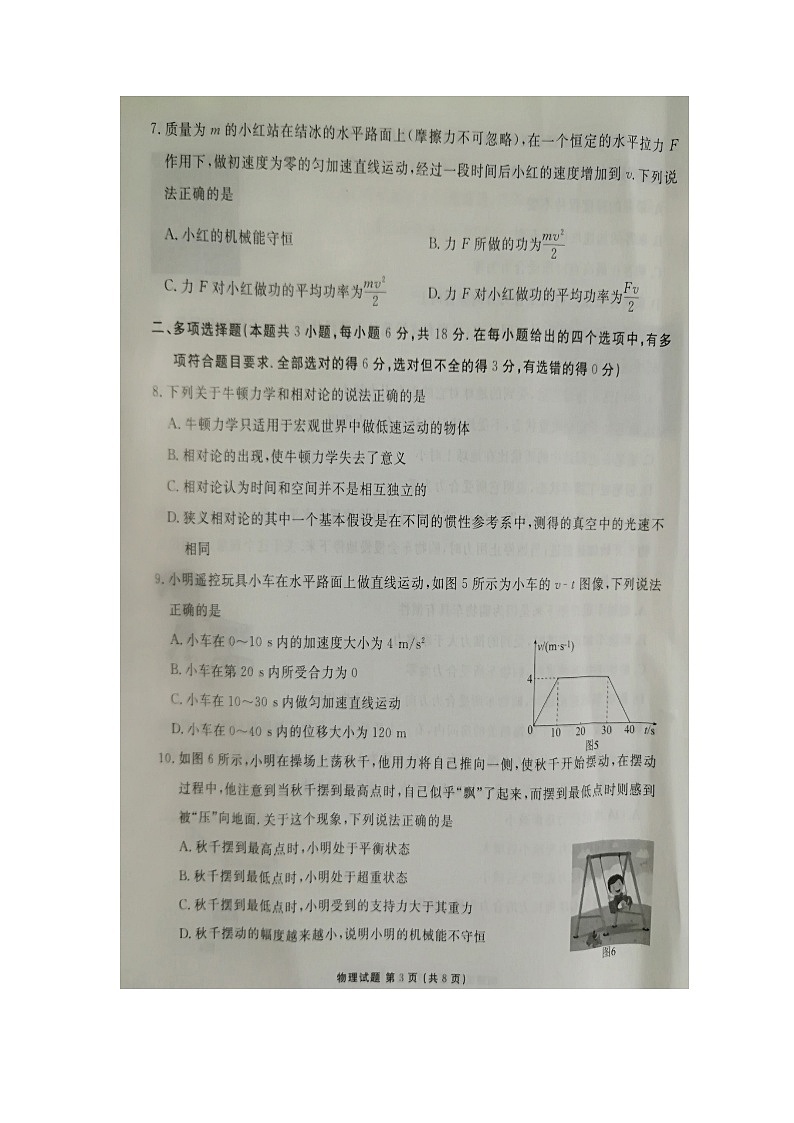 7. 质量为 m 的小红站在结冰的水平路面上(摩擦力不可忽略),在一个恒定的水平拉力 F
作用下,做初速度为零的匀加速直线运动,经过一段时间后小红的速度增加到 v.下列说
法正确的是
A. 小红的机械能守恒
B. 力 F 所做的功为mv²/2
C. 力 F 对小红做功的平均功率为mv²/2
D. 力 F 对小红做功的平均功率为Fv/2
二、多项选择题(本题共 3 小题,每小题 6 分,共 18 分.在每小题给出的四个选项中,有多
项符合题目要求.全部选对的得 6 分,选对但不全的得 3 分,有选错的得 0 分)
8. 下列关于牛顿力学和相对论的说法正确的是
A. 牛顿力学只适用于宏观世界中做低速运动的物体
B. 相对论的出现,使牛顿力学失去了意义
C. 相对论认为时间和空间并不是相互独立的
D. 狭义相对论的其中一个基本假设是在不同的惯性参考系中,测得的真空中的光速不
相同
9. 小明遥控玩具小车在水平路面上做直线运动,如图 5 所示为小车的 v-t 图像,下列说法
正确的是
A. 小车在 0~10 s 内的加速度大小为 4 m/s²
B. 小车在第 20 s 内所受合力为 0
C. 小车在 10~30 s 内做匀加速直线运动
D. 小车在 0~40 s 内的位移大小为 120 m
v/(m·s⁻¹)
4
0 10 20 30 40 t/s
图5
10. 如图 6 所示,小明在操场上荡秋千,他用力将自己推向一侧,使秋千开始摆动,在摆动
过程中,他注意到当秋千摆到最高点时,自己似乎“飘”了起来,而摆到最低点时则感到
被“压”向地面.关于这个现象,下列说法正确的是
A. 秋千摆到最高点时,小明处于平衡状态
B. 秋千摆到最低点时,小明处于超重状态
C. 秋千摆到最低点时,小明受到的支持力大于其重力
D. 秋千摆动的幅度越来越小,说明小明的机械能不守恒
图6
物理试题 第 3 页 (共 8 页)